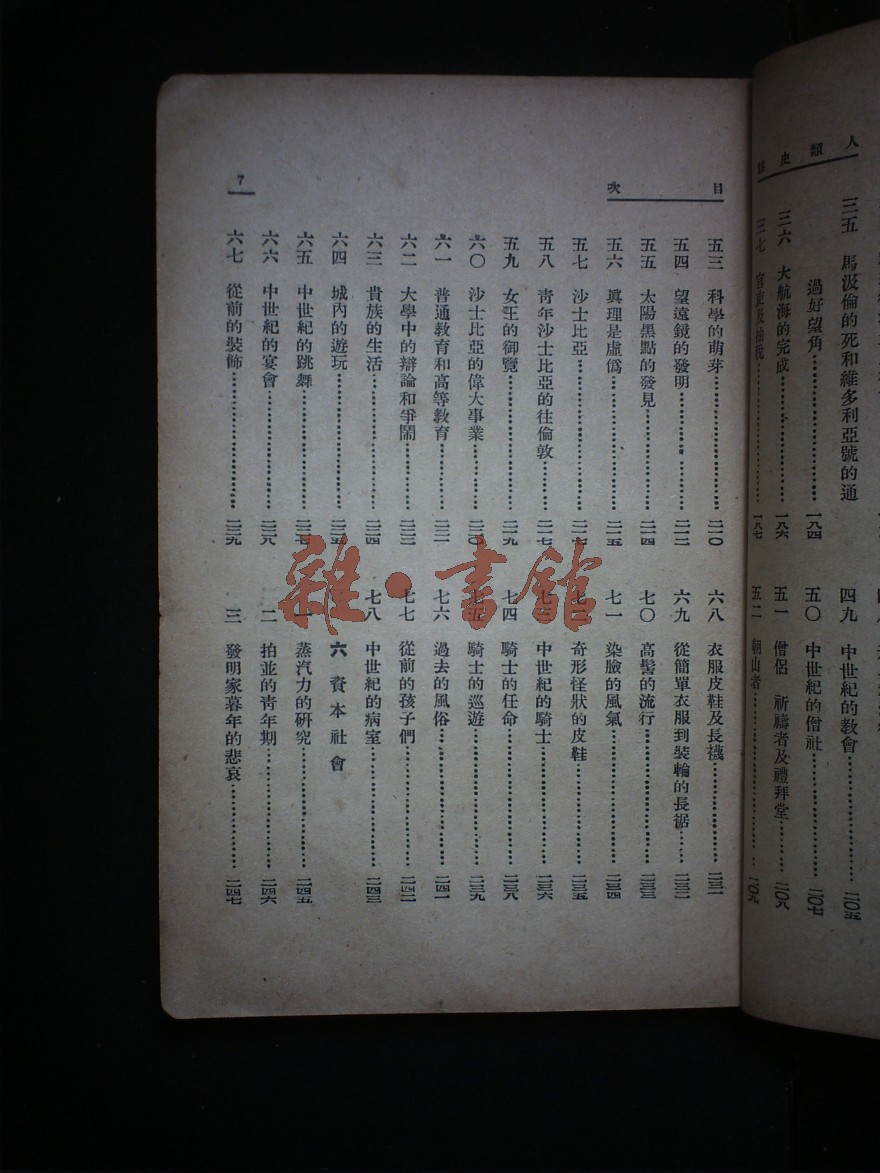 人類史話
三五 馬汲倫的死和維多利亞號的通
過好望角……一八四
三六 大航海的完成……一八六
三七 官吏及抽稅……一八七
四九 中世紀的教會……二〇五
五〇 中世紀的僧社……二〇七
五一 僧侶 祈禱者及禮拜堂……二〇八
五二 朝山者……二〇九
目次
五三 科學的萌芽……二一〇
五四 望遠鏡的發明……二一二
五五 太陽黑點的發見……二一四
五六 眞理是虛僞……二一五
五七 沙士比亞……二一七
五八 靑年沙士比亞的往倫敦……二一七
五九 女王的御覽……二一九
六〇 沙士比亞的偉大事業……二二〇
六一 普通敎育和高等敎育……二二一
六二 大學中的辯論和爭鬧……二二三
六三 貴族的生活……二二四
六四 城內的遊玩……二二五
六五 中世紀的跳舞……二二七
六六 中世紀的宴會……二二八
六七 從前的裝飾……二二九
六八 衣服皮鞋及長襪……二三一
六九 從簡單衣服到裝輪的長裾……二三二
七〇 高髻的流行……二三三
七一 染臉的風氣……二三四
七二 奇形怪狀的皮鞋……二三五
七三 中世紀的騎士……二三六
七四 騎士的任命……二三八
七五 騎士的巡遊……二三九
七六 過去的風俗……二四一
七七 從前的孩子們……二四二
七八 中世紀的病室……二四三
六 資本社會
一 蒸汽力的研究……二四五
二 拍並的靑年期……二四六
三 發明家暮年的悲哀……二四七
7
雜·書館